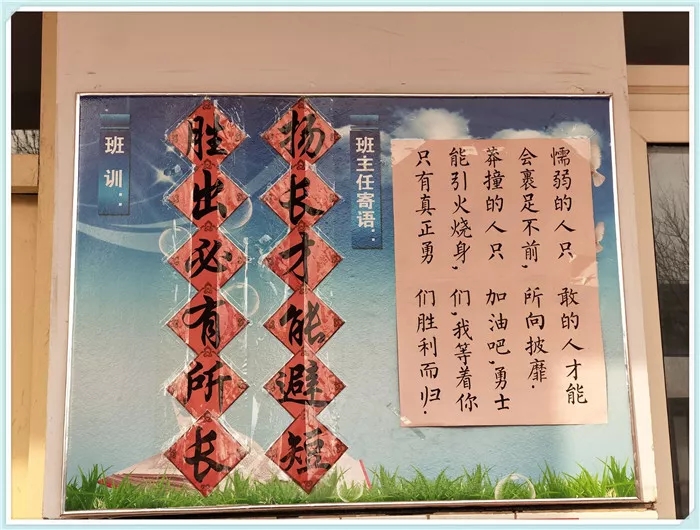 班训:
胜出必有所长
扬长才能避短
班主任寄语:
懦弱的人只
会裹足不前,
莽撞的人只
能引火烧身,
只有真正勇
敢的人才能
所向披靡.
加油吧,勇士
们,我等着你
们胜利而归.